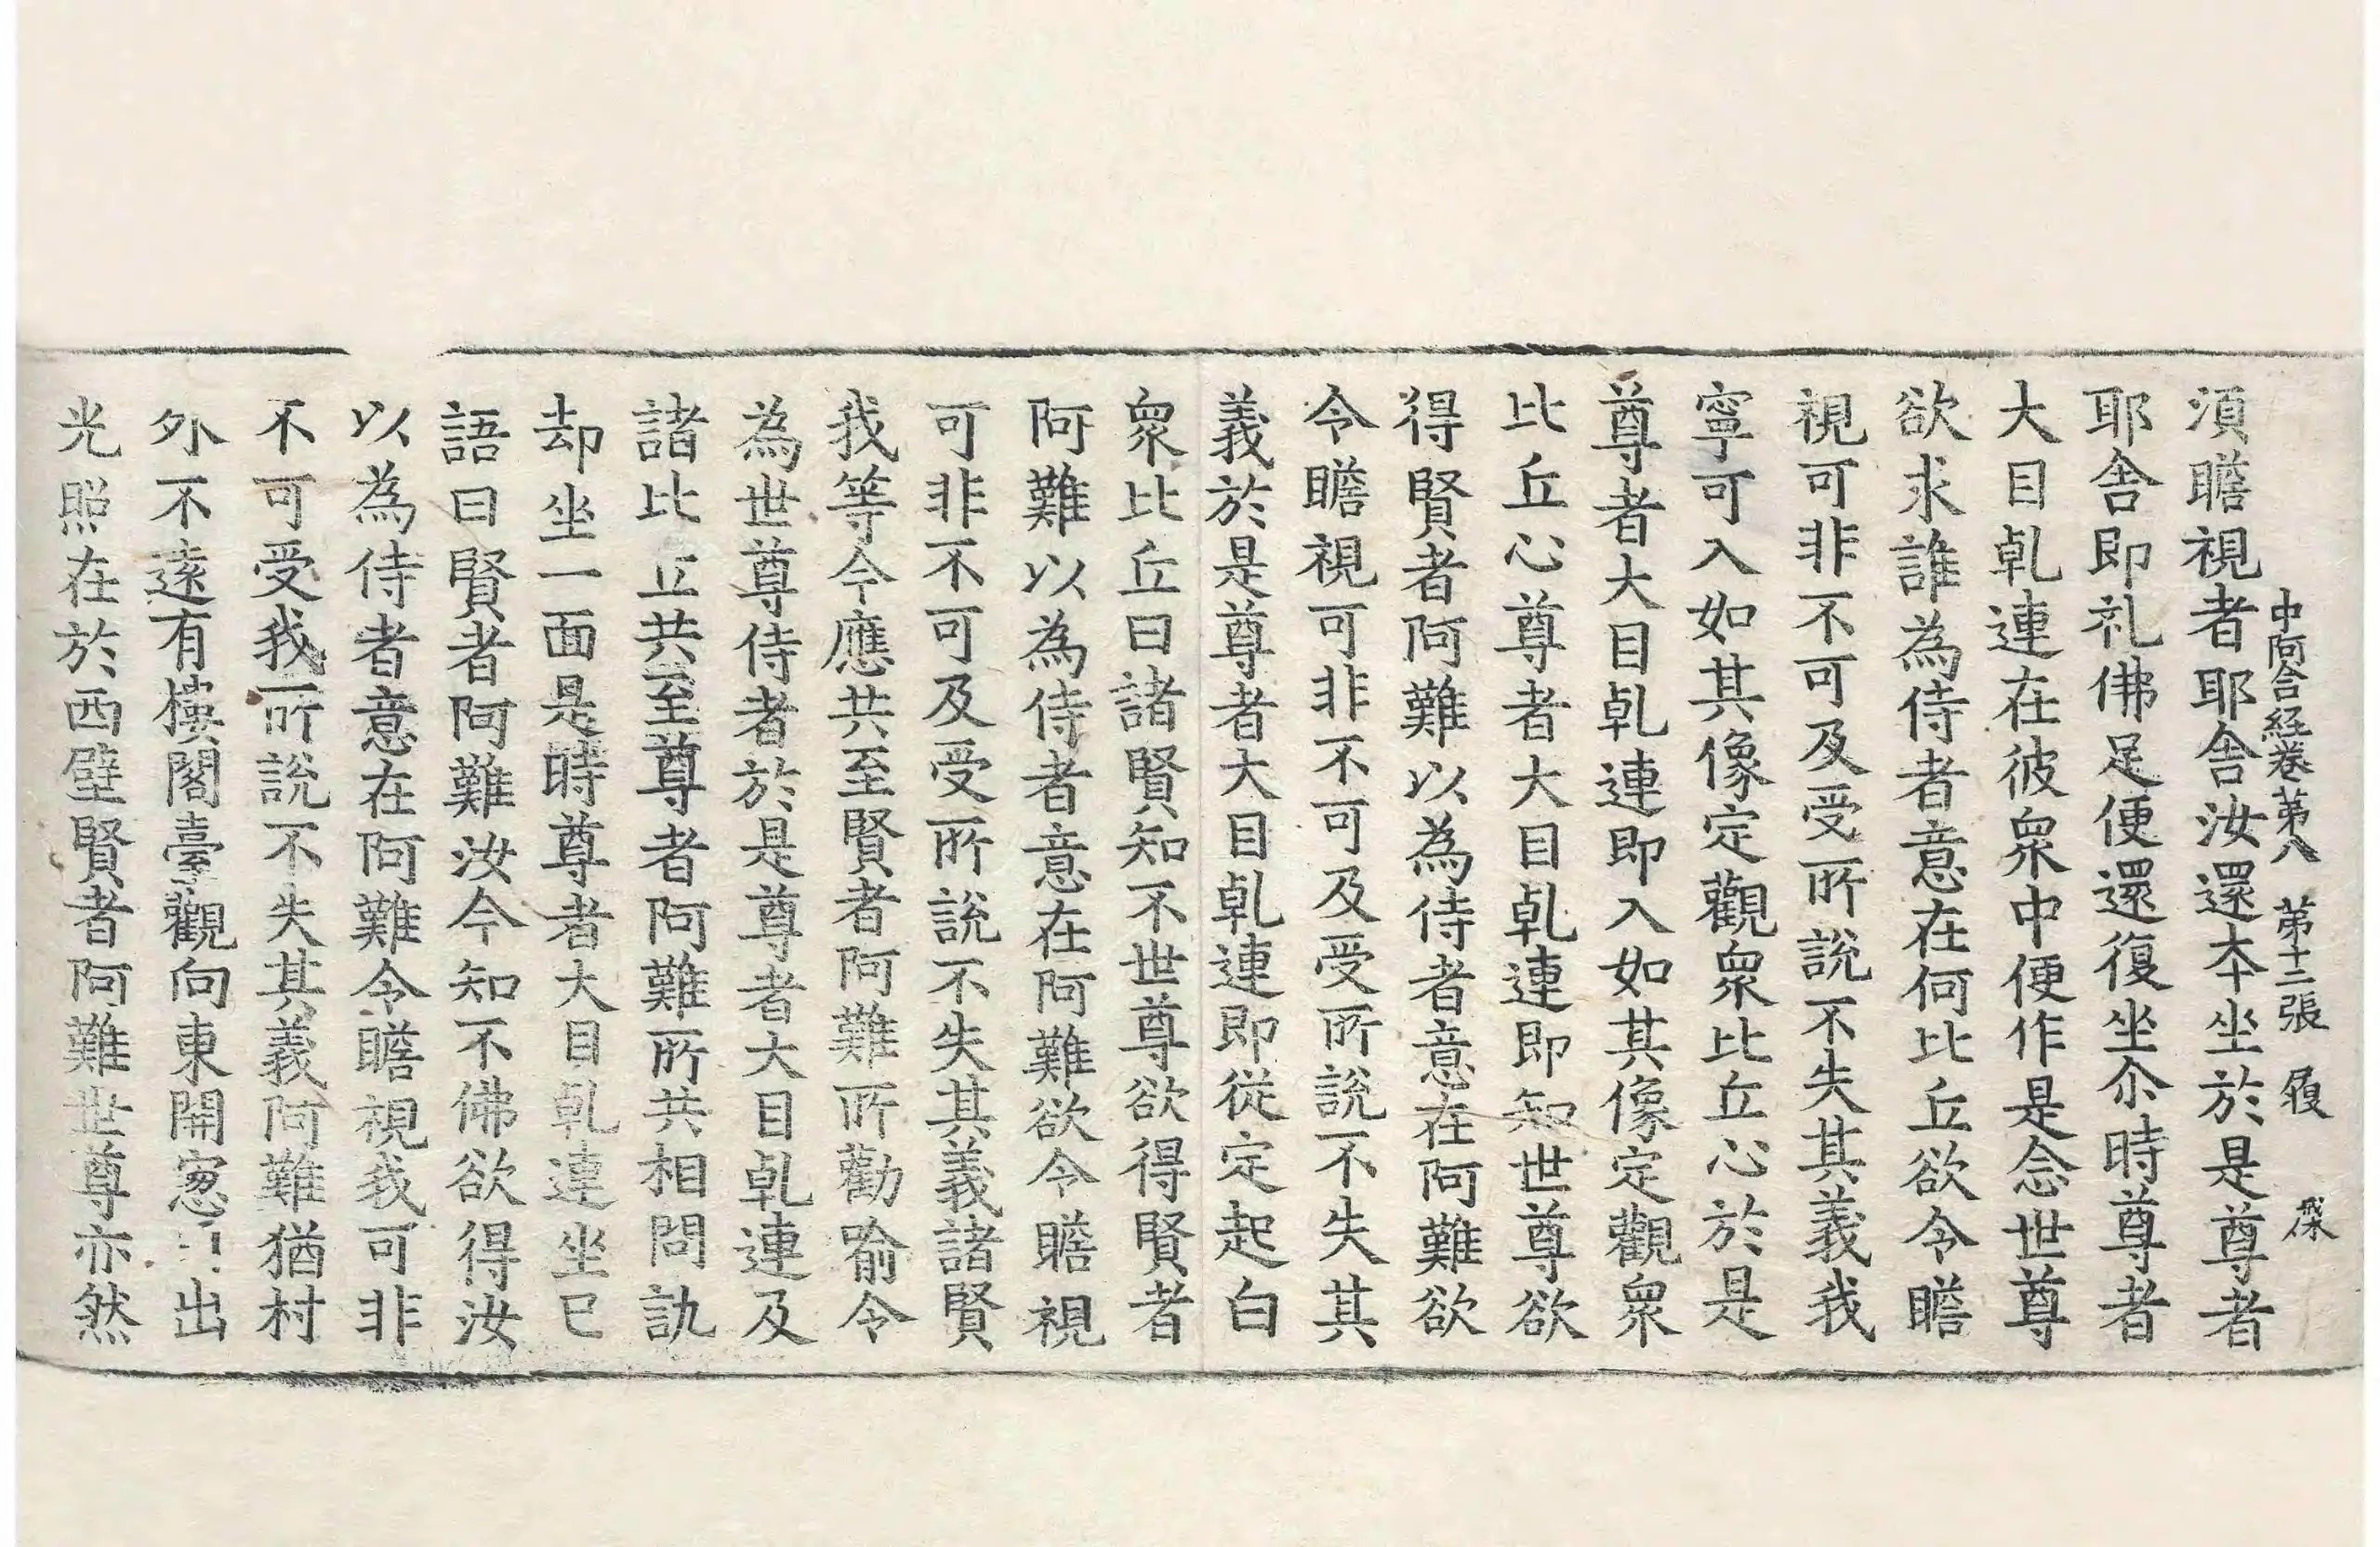 中阿含経卷苐八 苐十二張 履
湏瞻視者耶舍汝還夲坐於是尊者
耶舍即礼佛足便還復坐尒時尊者
大目乹連在彼衆中便作是念世尊
欲求誰為侍者意在何比丘欲令瞻
視可非不可及受所說不失其義我
寧可入如其像定觀衆比丘心於是
尊者大目乹連即入如其像定觀衆
比丘心尊者大目乹連即知世尊欲
得賢者阿難以為侍者意在阿難欲
令瞻視可非不可及受所說不失其
義於是尊者大目乹連即從定起白
衆比丘曰諸賢知不世尊欲得賢者
阿難以為侍者意在阿難欲令瞻視
可非不可及受所說不失其義諸賢
我等今應共至賢者阿難所勸喻令
為世尊侍者於是尊者大目乹連及
諸比丘共至尊者阿難所共相問訊
却坐一面是時尊者大目乹連坐已
語曰賢者阿難汝今知不佛欲得汝
以為侍者意在阿難令瞻視我可非
不可受我所說不失其義阿難猶村
外不遠有樓閣臺觀向東開窓出
光照在於西壁賢者阿難世尊亦然